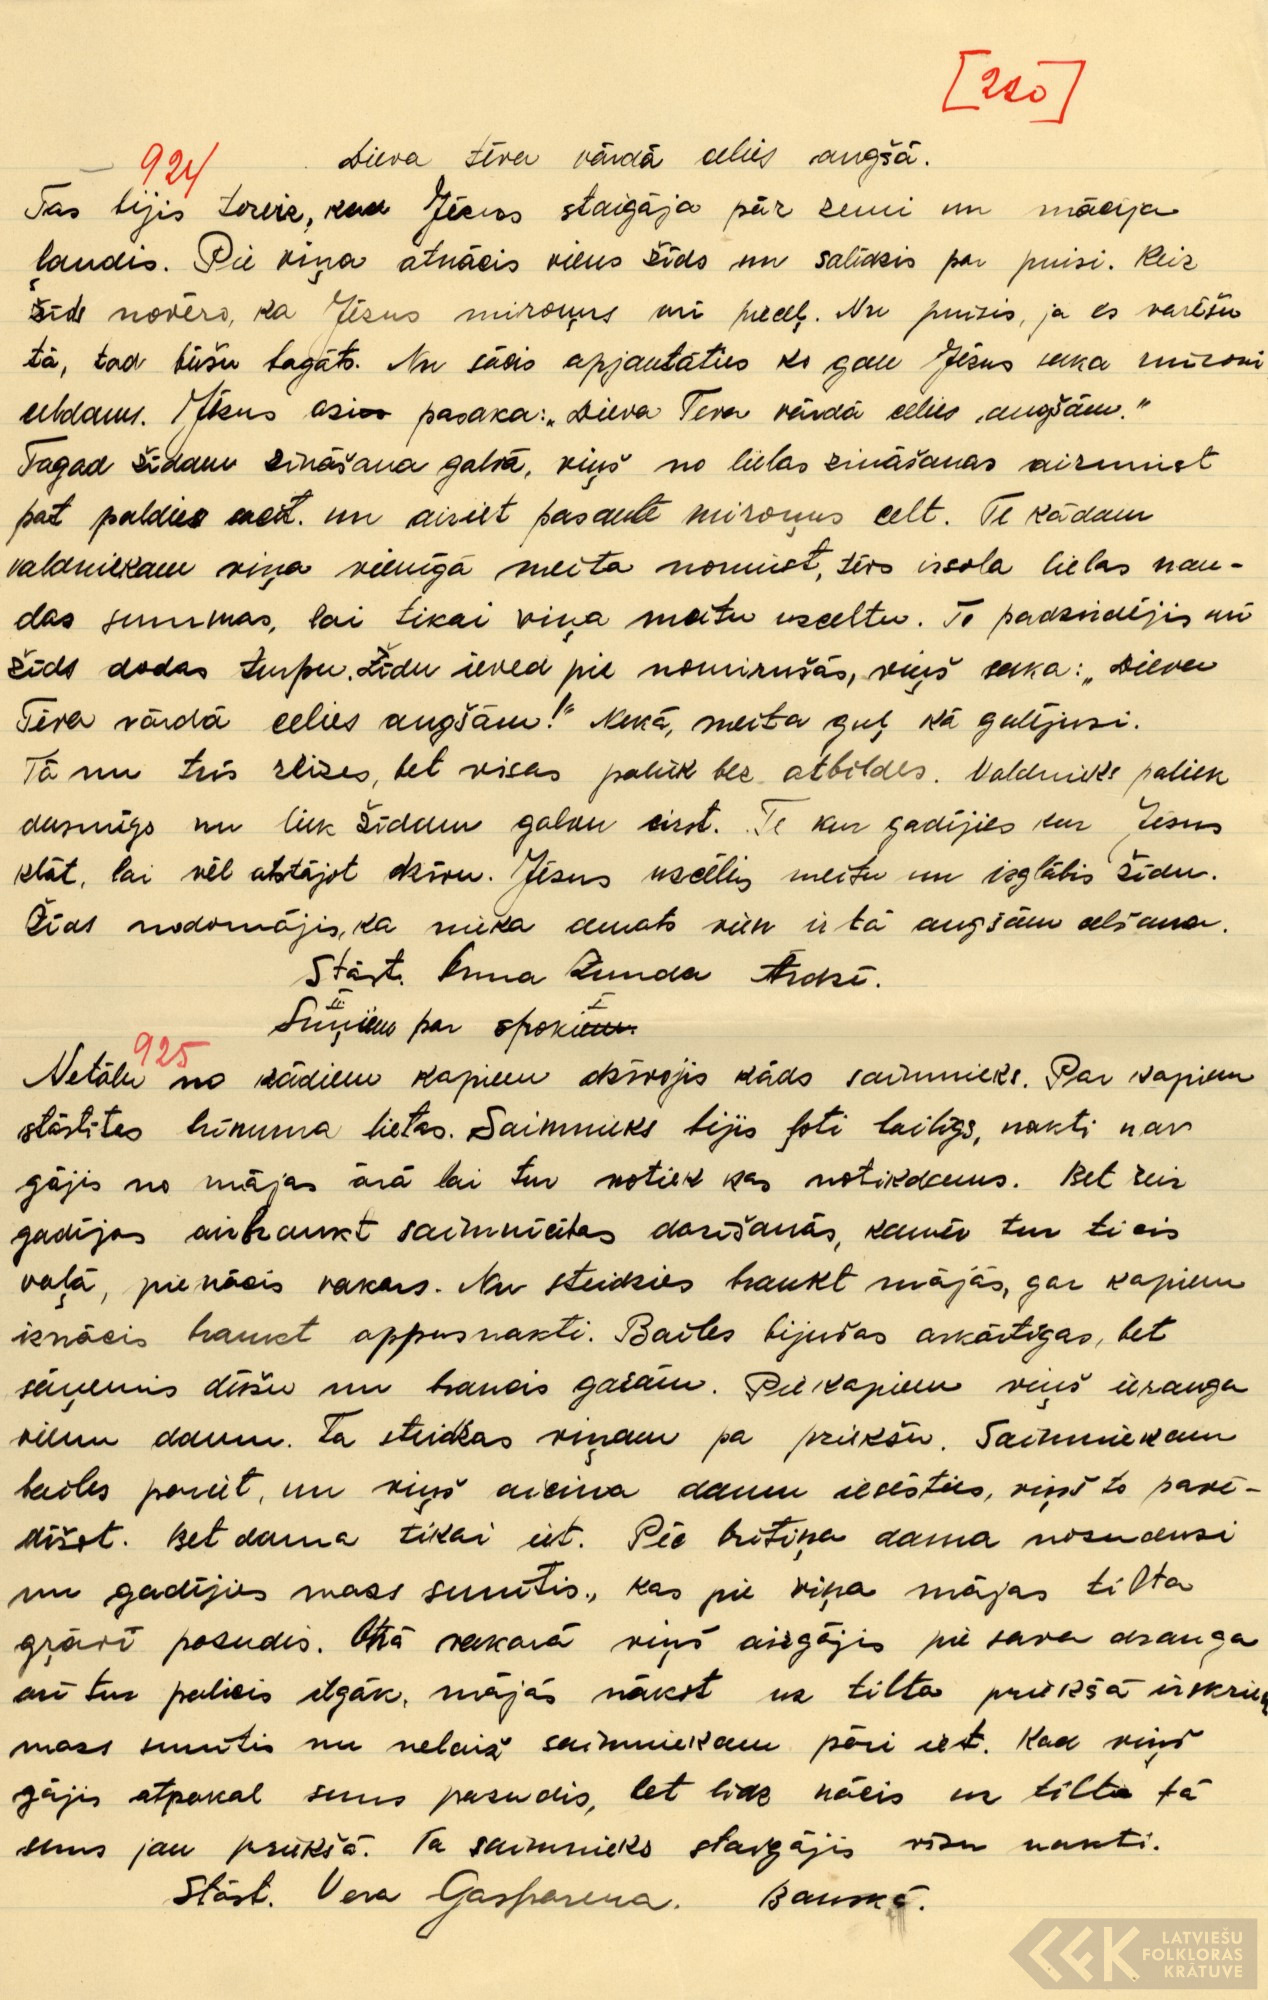 [220]
924
Dieva tēva vārdā celies augšā.
Tas bijis toreiz, kad Jēzus staigāja pār zemi un mācija
ļaudis. Pie viņa atnācis viens žīds un salīdzis par puisi. Reiz
žīds novēro, ka Jēzus miroņus arī pieceļ. Nu puisis, ja es varēšu
tā, tad būšu bagāts. Nu sācis apjautāties ko gan Jēzus saka mironi
celdams. Jēzus pasaka: „Dieva Tēva vārdā celies augšām."
Tagad žīdam zināšana galvā, viņš no lielas zināšanas aizmirst
pat paldies un aiziet pasaulē miroņus celt. Te kādam
valdniekam viņa vienīgā meita nomirst, tēvs izsola lielas nau-
das summas, lai tikai viņa meitu uzceltu. To padzirdējis arī
žīds dodas turpu. Žīdu ieved pie nomirušās, viņš saka: „Dieva
Tēva vārdā celies augšām!" Nekā, meita guļ kā gulējusi.
Tā nu trīs reizes, bet visas paliek bez atbildes. Valdnieks paliek
dusmīgs un liek žīdam galvu cirst. Te kur gadījies kur Jēzus
klāt, lai vēl atstājot dzīvu. Jēzus uzcēlis meitu un izglābis žīdu.
Žīds nodomājis, ka nieka amats vien ir tā augšām celšana.
Stāst. Anna Zunda Īrdzē.
II I
Suņiem par spokiem
925
Netālu no kādiem kapiem dzīvojis kāds saimnieks. Par kapiem
stāstītas briesmu lietas. Saimnieks bijis ļoti bailīgs, nakti nav
gājis no mājas ārā lai tur notiek kas notikdams. Bet reiz
gadījās aizbraukt saimniecības darīšanās, kamēr tur ticis
vaļā, pienācis vakars. Nu steidzies braukt mājās, gar kapiem
iznācis braukt appusnakti. Bailes bijušas ārkārtīgas, bet
saņemis dūšu un braucis garām. Pie kapiem viņš ierauga
vienu damu. Ta steidzas viņam pa priekšu. Saimniekam
bailes pariet, un viņš aicina damu iesēsties, viņš to pavē-
dīšot. Bet dama tikai iet. Pēc brītiņa dama nozudusi
un gadījies mazs sunītis, kas pie viņa mājas tilta
grāvī pazudis. Otrā vakarā viņš aizgājis pie sava drauga
arī tur palicis ilgāk, mājās nākot uz tilta priekšā izskrien
mazs sunītis un nelaiž saimniekam pāri iet. Kad viņš
gājis atpakal suns pazudis, bet līdz nācis uz tilta tā
suns jau priekšā. Ta saimnieks staigājis visu nakti.
Stāst. Vera Gasparena. Bauskā.
LATVIEŠU
FOLKLORAS
KRĀTUVE